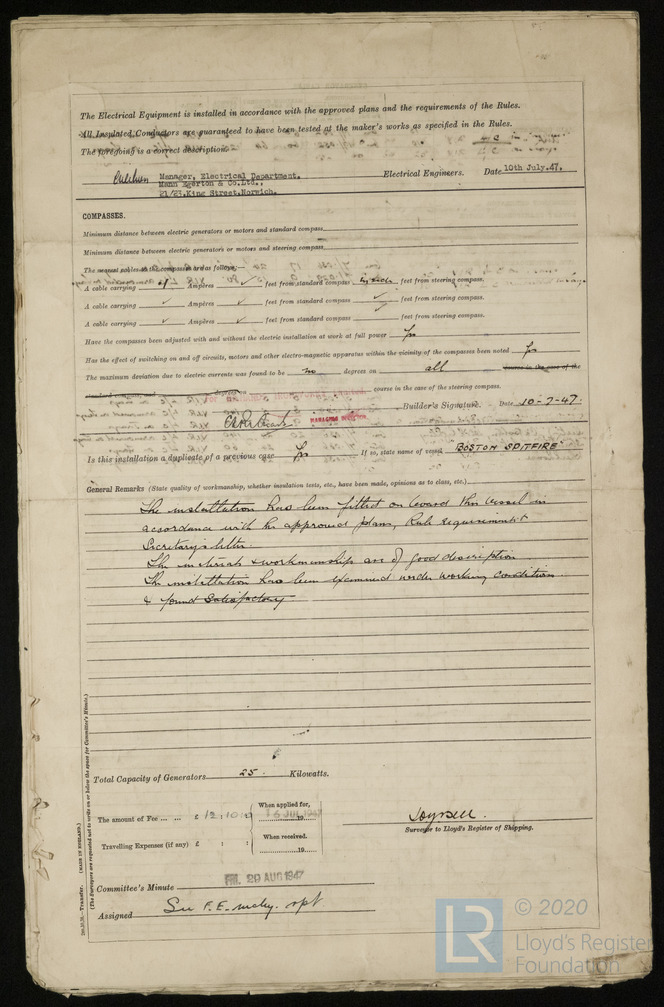 The Electrical Equipment is installed in accordance with the approved plans and the requirements of the Rules.
All Insulated Conductors are guaranteed to have been tested at the maker's works as specified in the Rules.
The foregoing is a correct description.
Manager, Electrical Department.
Mann Egerton & Co.Ltd.,
21/23.King Street.Norwich.
Electrical Engineers. Date 10th July.47.
COMPASSES.
Minimum distance between electric generators or motors and standard compass
Minimum distance between electric generators or motors and steering compass
The nearest cables to the compasses are as follows:—
A cable carrying Ampères feet from standard compass feet from steering compass.
A cable carrying ✓ Ampères ✓ feet from standard compass ✓ feet from steering compass.
A cable carrying ✓ Ampères ✓ feet from standard compass feet from steering compass.
Have the compasses been adjusted with and without the electric installation at work at full power Yes
Has the effect of switching on and off circuits, motors and other electro-magnetic apparatus within the vicinity of the compasses been noted Yes
The maximum deviation due to electric currents was found to be no degrees on all course in the case of the
standard compass, and degrees on course in the case of the steering compass.
MANAGING DIRECTOR.
Builder's Signature. Date 10-7-47.
Is this installation a duplicate of a previous case Yes If so, state name of vessel "BOSTON SPITFIRE"
General Remarks (State quality of workmanship, whether insulation tests, etc., have been made, opinions as to class, etc.)
The installation has been fitted on board this vessel in
accordance with the approved plans, Rule requirements &
Secretary's letter.
The materials & workmanship are of good description.
The installation has been examined under working condition
& found satisfactory
Total Capacity of Generators 25 Kilowatts.
The amount of Fee ... ... £ 12:10:0
When applied for,
16 JUL 1947
19
Travelling Expenses (if any) £ : :
When received.
19
Surveyor to Lloyd's Register of Shipping.
Committee's Minute FRI. 29 AUG 1947
Assigned See F.E. mchy. rpt
Transfer. (MADE IN ENGLAND.)
(The Surveyors are requested not to write on or below the space for Committee's Minute.)
LR
© 2020
Lloyd's Register
Foundation